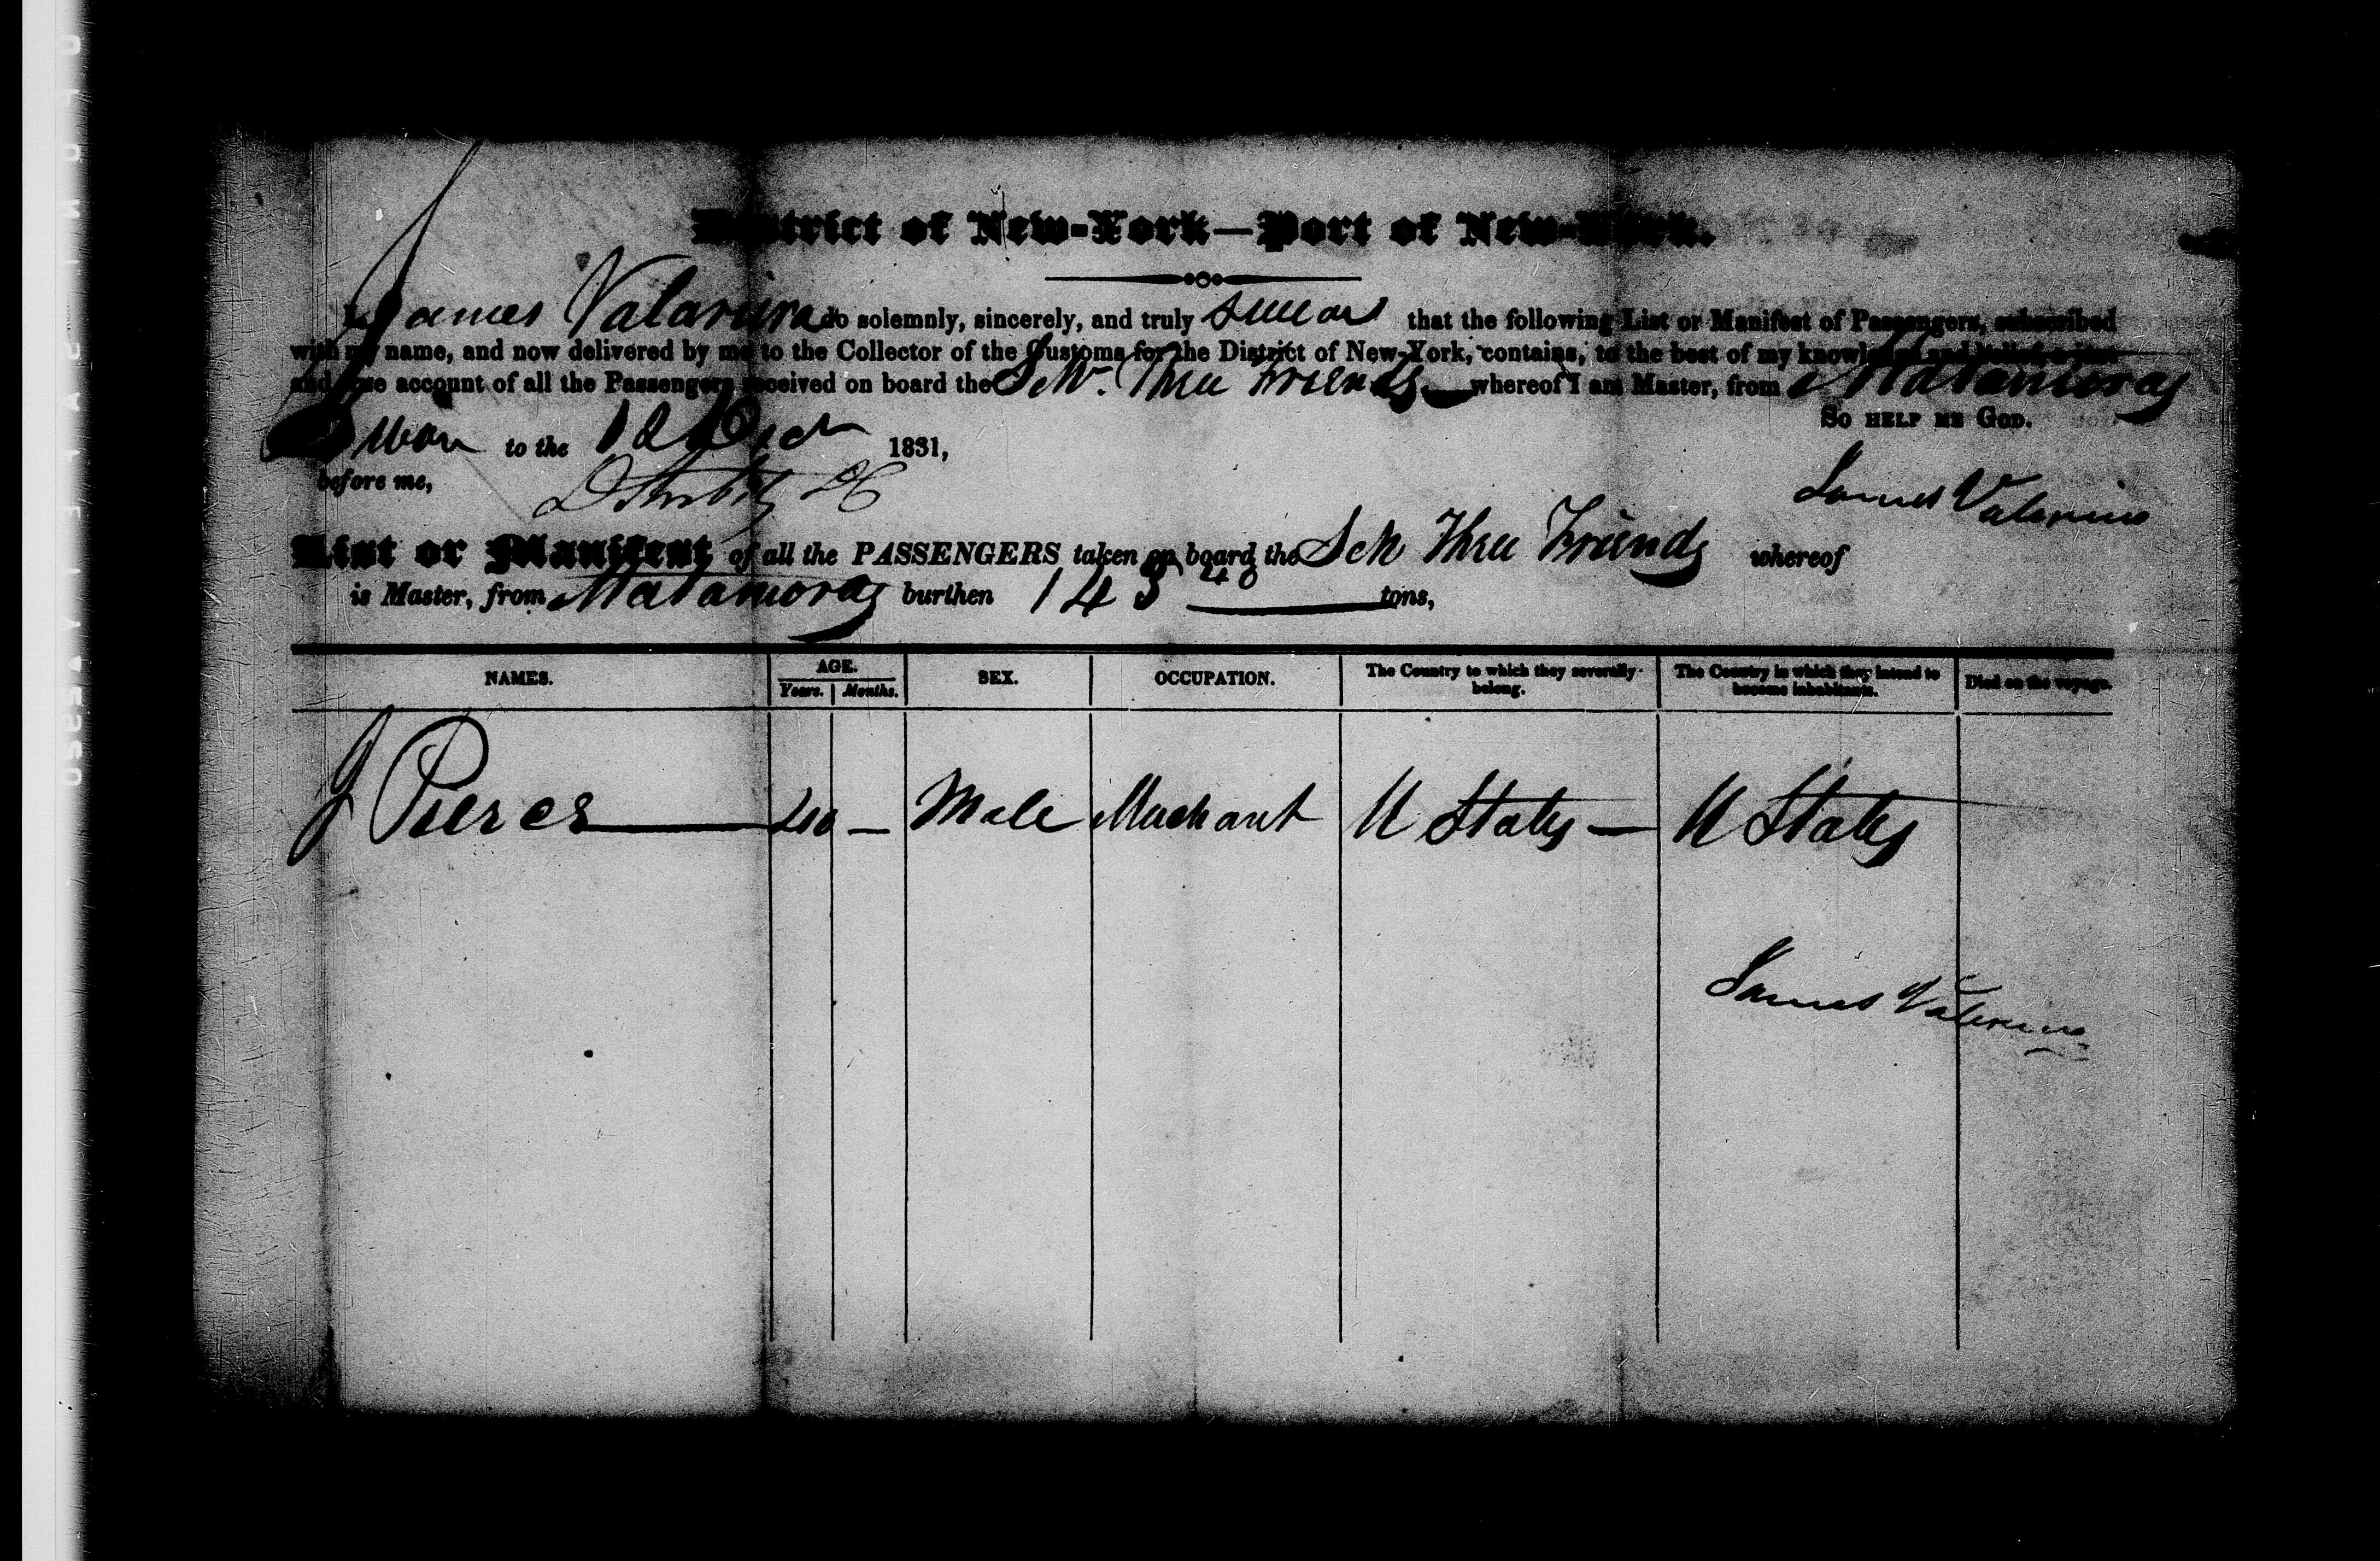 District of New-York—Port of New-York.
I, James Valarino do solemnly, sincerely, and truly swear that the following List or Manifest of Passengers, subscribed
with my name, and now delivered by me to the Collector of the Customs for the District of New-York, contains, to the best of my knowledge and belief, a just
and true account of all the Passengers received on board the Schr. Three Friends whereof I am Master, from Matamoras
So HELP ME GOD.
Sworn to the 12 1831,
before me,
James Valarino
List or Manifest of all the PASSENGERS taken on board the Sch Three Friends whereof
is Master, from Matamoras burthen 143 tons,
NAMES. AGE. Years. Months. SEX. OCCUPATION. The Country to which they severally belong. The Country in which they intend to become inhabitants. Died on the voyage.
J Pierce — 40 — Male Merchant U States — U States
James Valarino